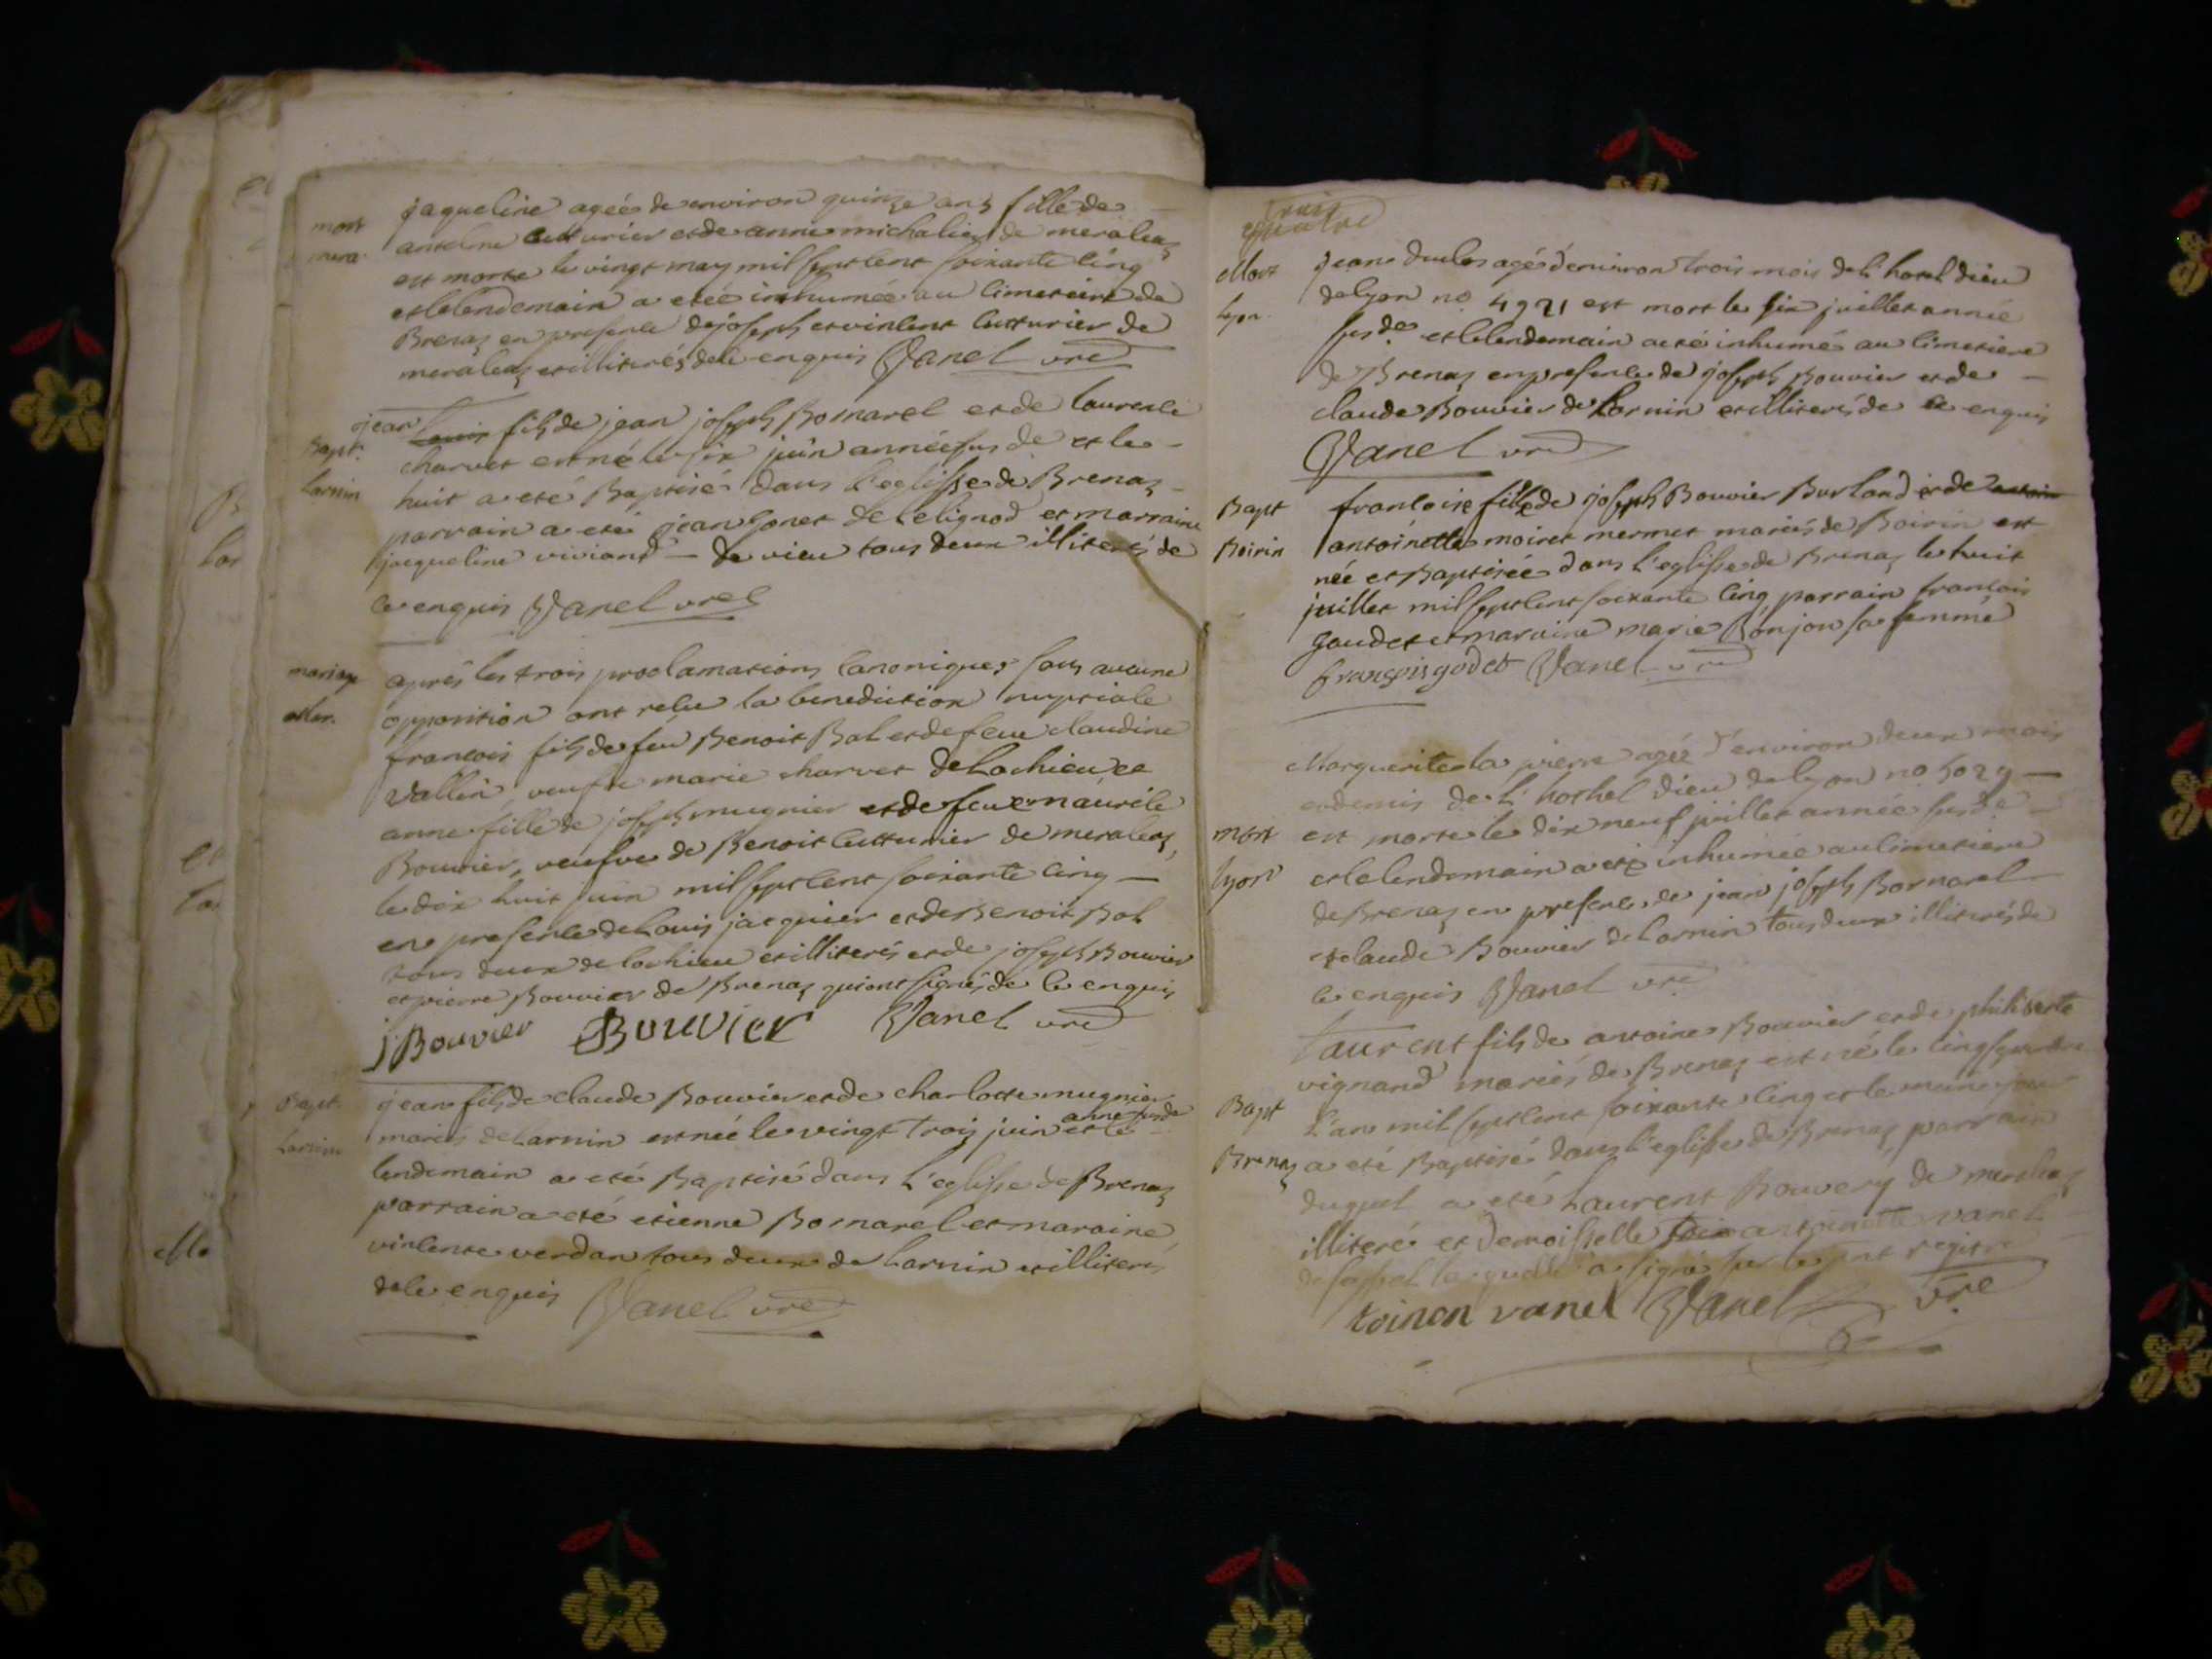 mort
mera
jaqueline ageé de environ quinze ans fille de
antelme cutturier et de anne michalier de meraleaz
est morte le vingt may mil sept cent soixante cinq
et le lendemain a eteé inhumée au cimetiere de
Brenaz en presence de joseph et vincent cutturier de
meraleaz et illiterés de ce enquis Vanel vre
Bapt.
Larnin
jean Louis fils de jean joseph Bornarel et de laurence
charvet est né le six juin année susde et le
huit a eté Baptisé dans l'eglisse de Brenaz
parrain a eté jean Gonet de Lelignod et marraine
jacqueline viviand de vieu tous deux illiterés de
ce enquis Vanel vre
mariage
après les trois proclamations canoniques sans aucune
opposition ont reçu la benediction nuptiale
francois fils de feu Benoit Bal et de feue claudine
vallin veuf de marie charvet de Lochieu, et
anne fille de joseph mugnier et de feue maurile
Bouvier, veufve de Benoit Cutturier de meraleaz,
le dix huit juin mil sept cent soixante cinq
en presence de Louis jacquier et de Benoit Bal
tous deux de lochieu et illiterés et de joseph Bouvier
et pierre Bouvier de Brenaz qui ont signés de ce enquis
j Bouvier Bouvier Vanel vre
Bapt.
Larnin
jean fils de claude Bouvier et de charlotte mugnier
mariés de Larnin est né le vingt trois juin année susde et le
lendemain a eté Baptisé dans l'eglisse de Brenaz
parrain a eté etienne Bornarel et maraine
vincente verdan tous deux de Larnin et illiterés
de ce enquis Vanel vre
trois
quatre
Mort
Lyon
jean duclos agé d'environ trois mois de l'hotel dieu
de lyon no 4921 est mort le six juillet année
susde et le lendemain a eté inhumé au cimetiere
de Brenaz en presence de joseph Bouvier et de
claude Bouvier de Larnin et illiterés de ce enquis
Vanel vre
Bapt
Boirin
francoise fille de joseph Bouvier Burland et de antoin
antoinette moiret mermet mariés de Boirin est
née et Baptisée dans l'eglisse de Brenaz le huit
juillet mil sept cent soixante cinq, parrain françois
Gaudet et maraine marie Bonjou sa femme
françois godet Vanel vre
mort
lyon
Marguerite la pierre ageé d'environ deux mois
et demis de l'hothel dieu de lyon no 5029
est morte le dix neuf juillet année susde
et le lendemain a eté inhumée au cimetiere
de Brenaz en presence de jean joseph Bornarel
et claude Bouvier de Larnin tous deux illiterés de
ce enquis Vanel vre
Bapt
Brenaz
Laurent fils de antoine Bouvier et de philiberte
vignand mariés de Brenaz est né le cinq septembre
l'an mil sept cent soixante cinq et le meme jour
a eté Baptisé dans l'eglisse de Brenaz, parrain
duquel a eté Laurent Bouvery de meraleaz
illiteré et demoisselle antoinette vanel
laquelle a signé sur le pnt registre
toinon vanel Vanel vre